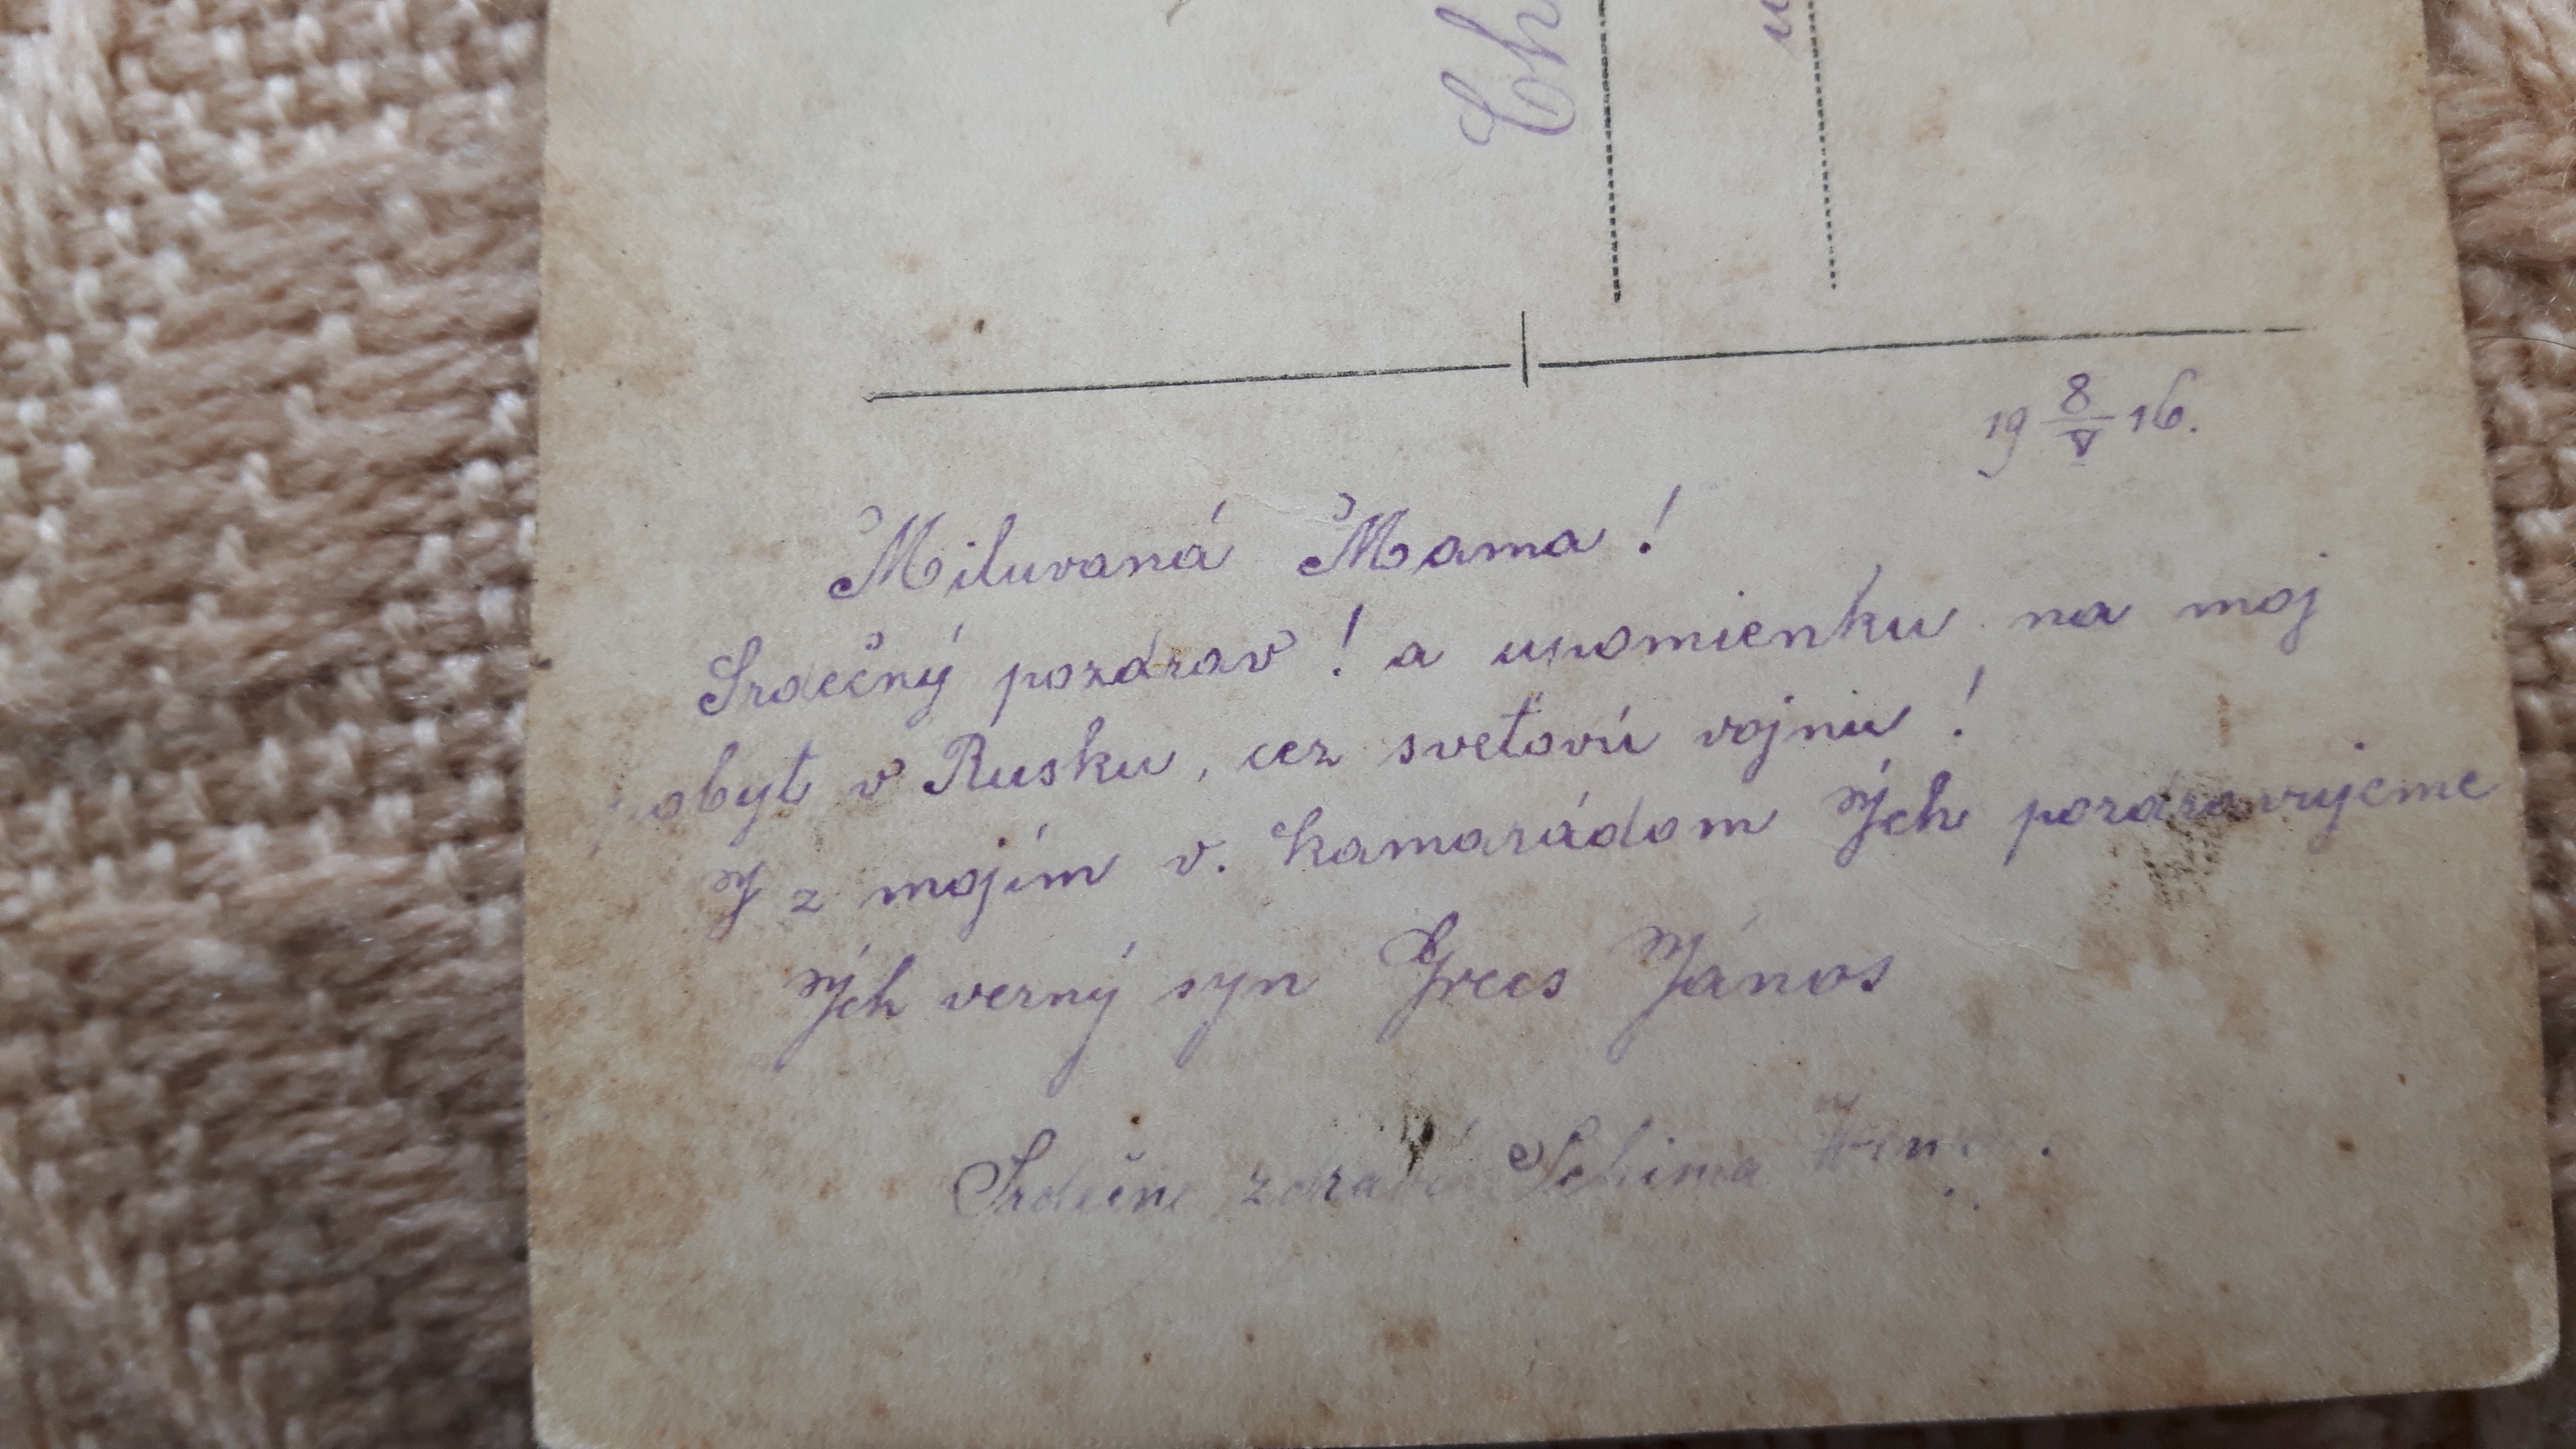 Ch
u
19 8/V 16.
Miluvaná Mama!
Srdečný pozdrav! a upomienku na moj
pobyt v Rusku, cez sveťovú vojnu!
Y z mojím v. kamarádom Ých pozdravujeme
Ých verný syn Grecs János
Srdečne zdraví Schima